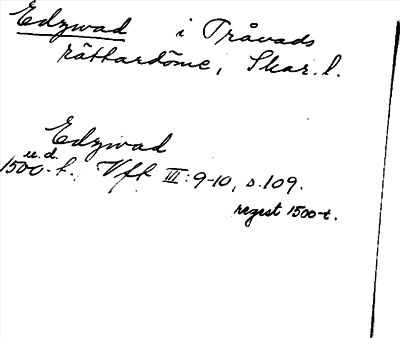 Edzwad i Tråvads
rättardöme, Skar. l.
Edzwad
u. d.
1500-t. Vft III: 9-10, s. 109.
regest 1500-t.